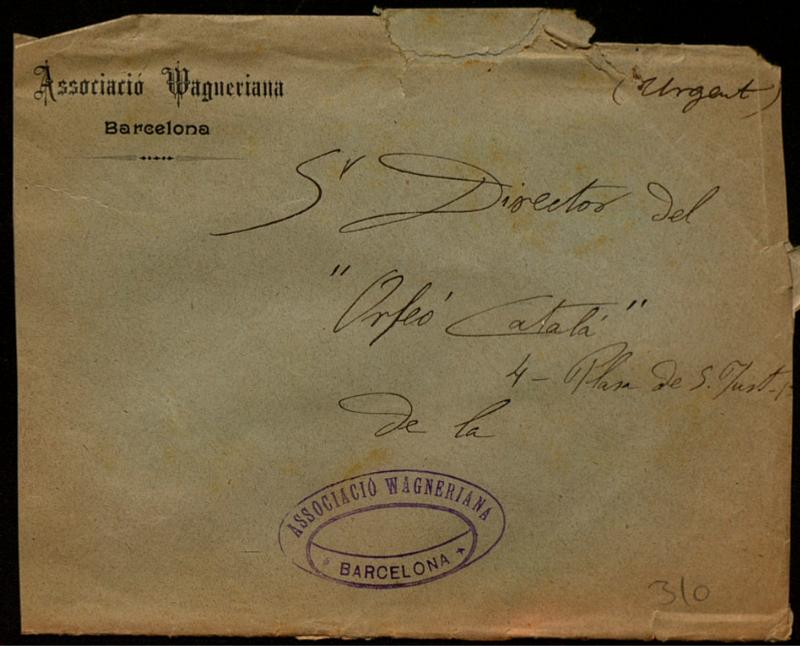 Associació Wagneriana
Barcelona
(Urgent)
Sr Director del
"Orfeó Catalá"
4 - Plasa de S. Just
de la
ASSOCIACIÓ WAGNERIANA
BARCELONA
310